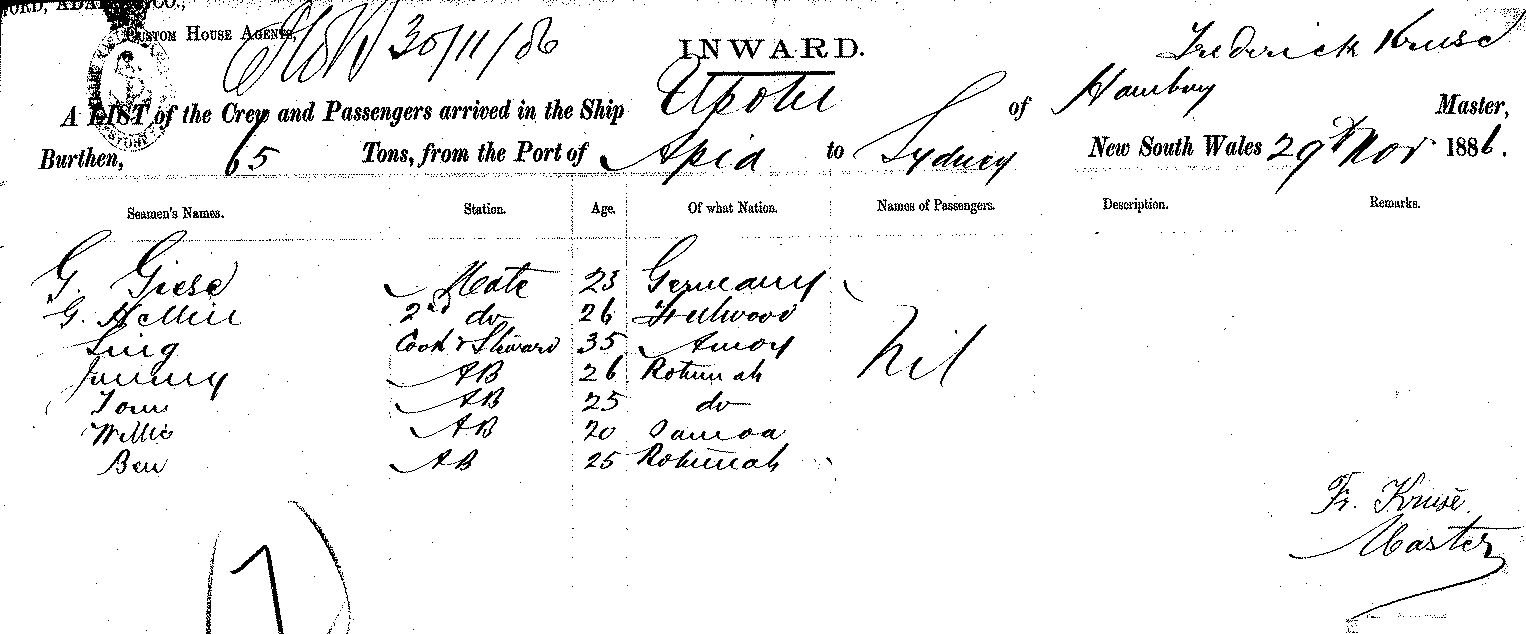 CO.,
CUSTOM HOUSE AGENTS,
30/11/86
INWARD.
Frederick Kruse
A LIST of the Crew and Passengers arrived in the Ship Upolu of Hamburg Master,
Burthen, 65 Tons, from the Port of Apia to Sydney New South Wales 29th Nov 1886.
Seamen's Names. Station. Age. Of what Nation. Names of Passengers. Description. Remarks.
G. Giese Mate 23 Germany
G. 2nd do 26
Ling Cook & Steward 35 Amoy Nil
Jimmy AB 26 Rotumah
Tom AB 25 do
Willie AB 20 Samoa
Ben AB 25 Rotumah
Fr. Kruse
Master
7